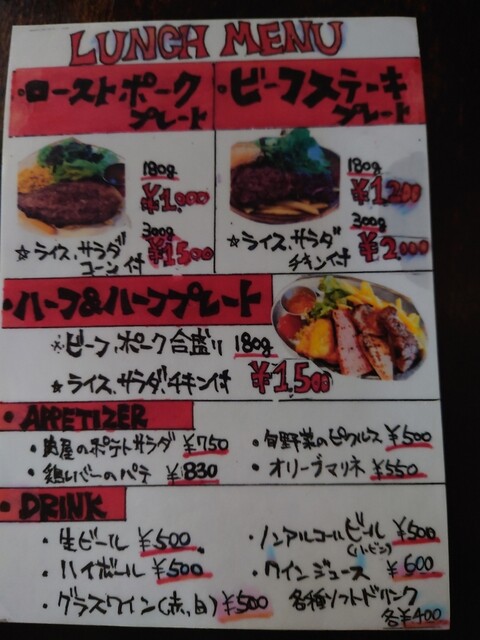 LUNCH MENU
・ローストポーク
プレート
・ビーフステーキ
プレート
180g
¥1.000
300g
¥1500
☆ライス、サラダ
コーン付
180g
¥1200
300g
¥2.000
☆ライス、サラダ
チキン付
・ハーフ&ハーフプレート
※ビーフ、ポーク合盛り 180g
☆ライス、サラダ、チキン付 ¥1,500
・APPETIZER
・肉屋のポテトサラダ ¥750
・旬野菜のピクルス ¥500
・鶏レバーのパテ ¥830
・オリーブマリネ ¥550
・DRINK
・生ビール ¥500
・ノンアルコールビール ¥500
・ハイボール ¥500
・ワインジュース ¥600
・グラスワイン(赤、白) ¥500
各種ソフトドリンク
各¥400